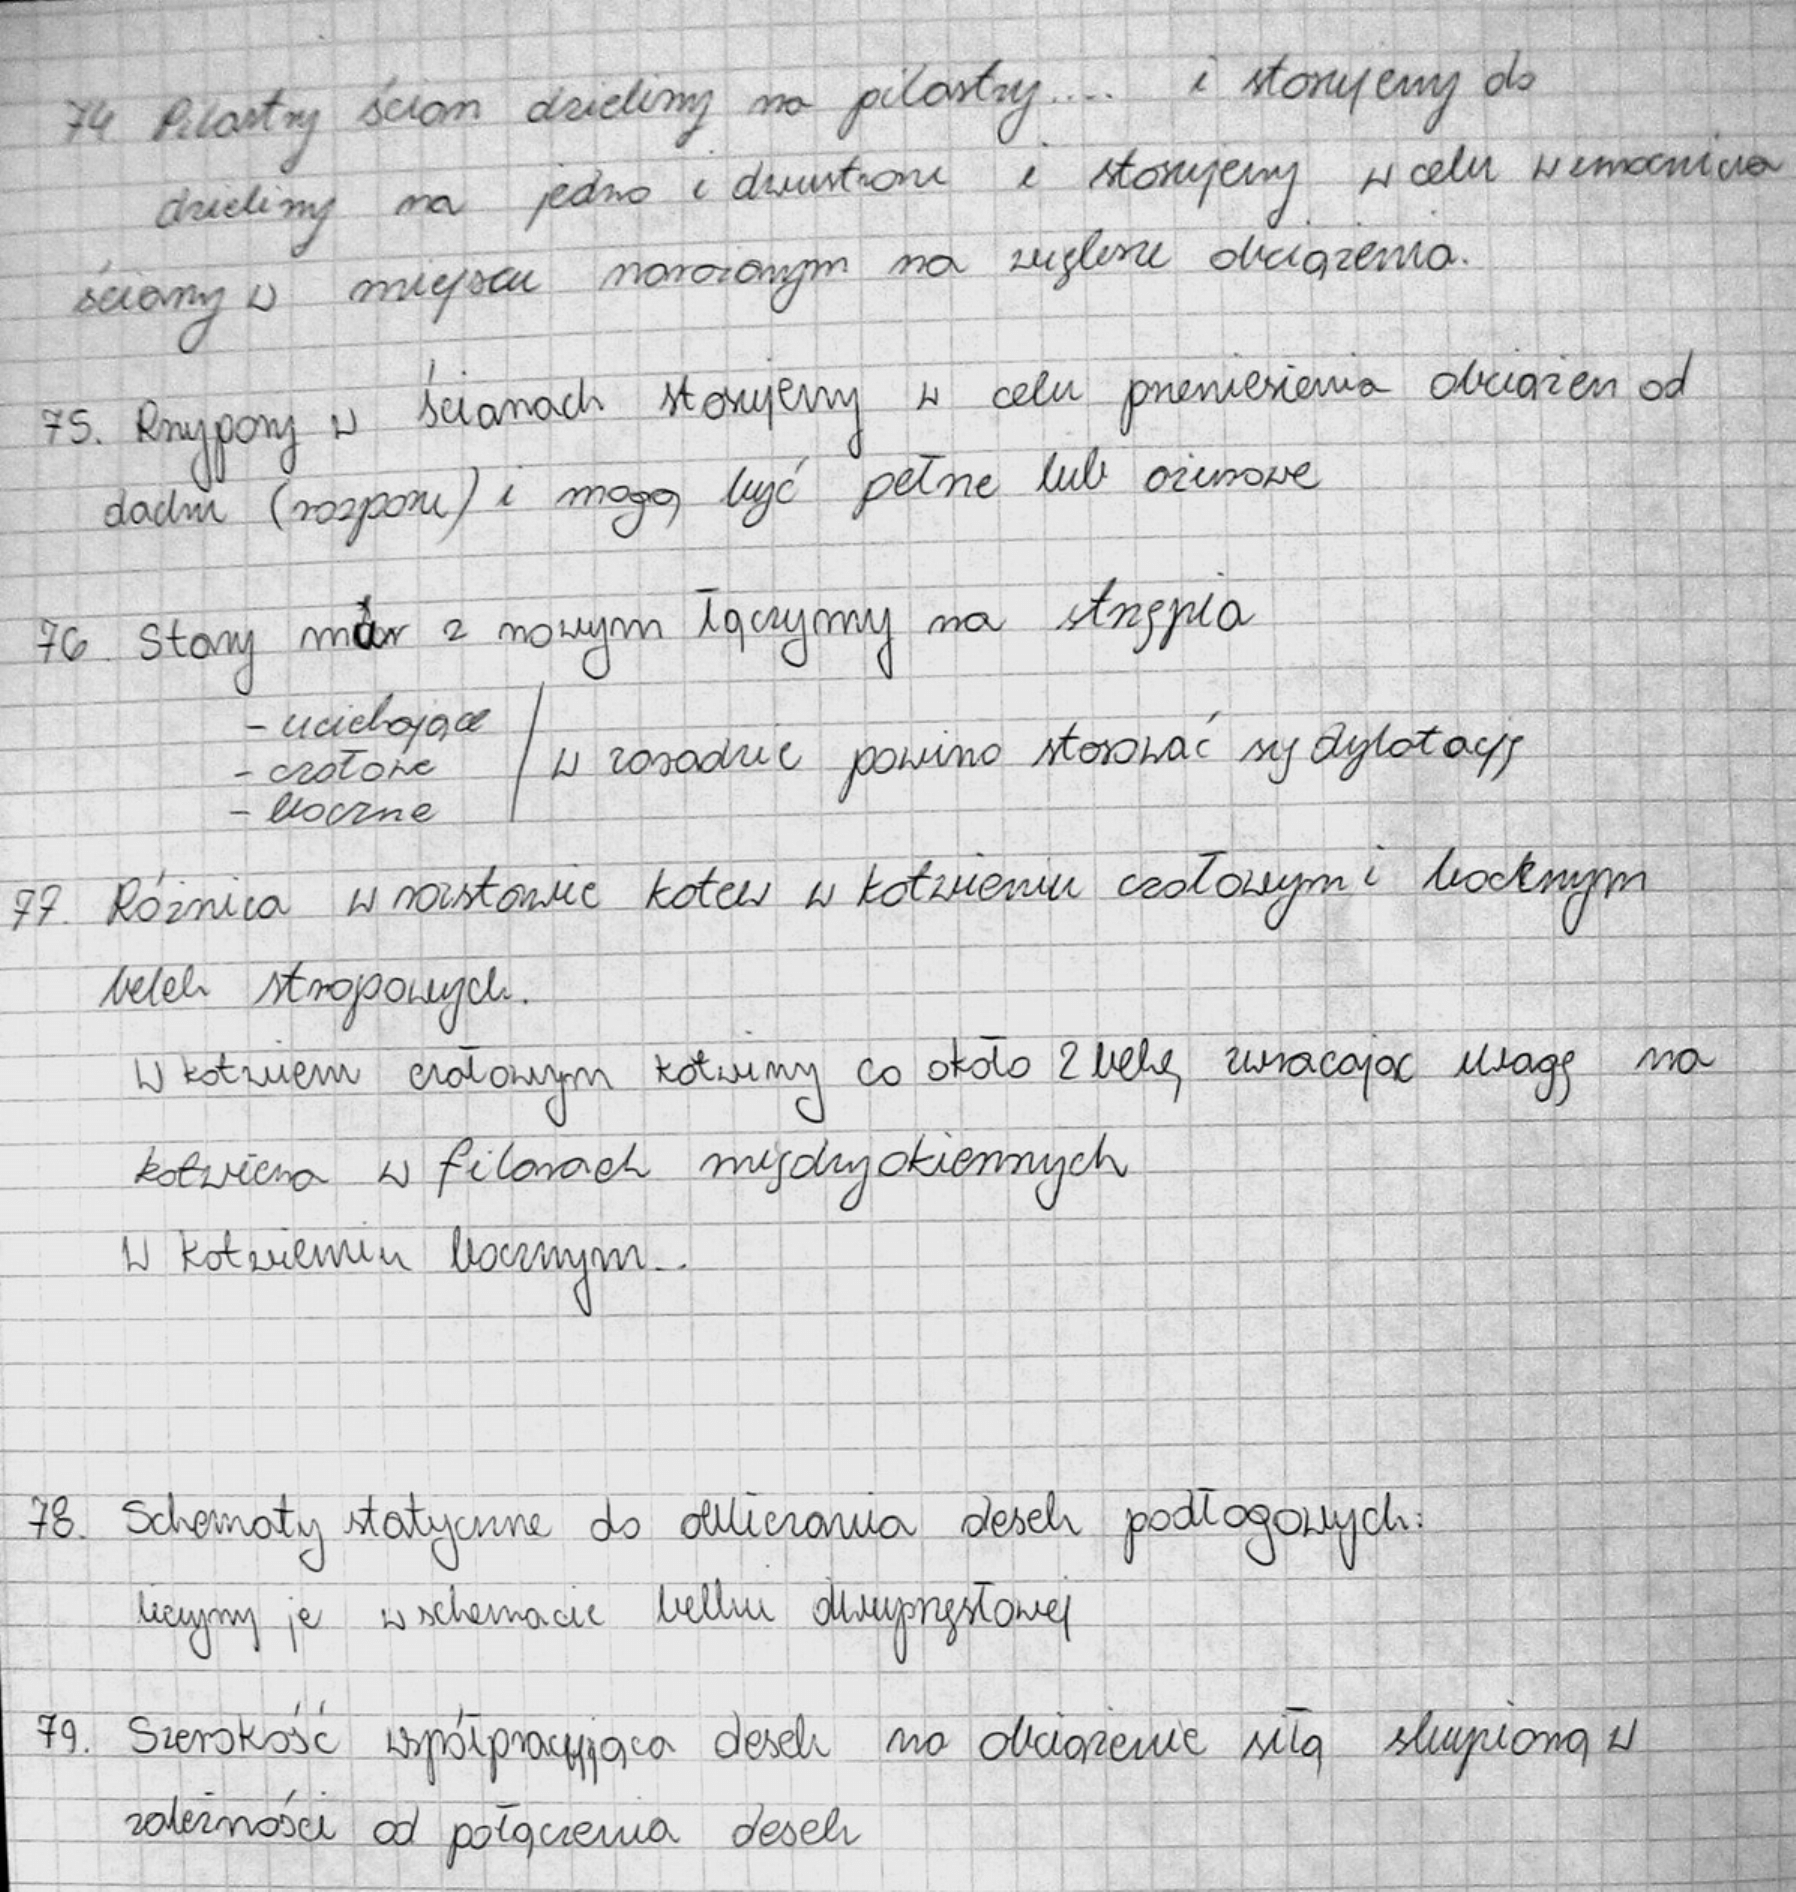 74 Pilastry ścian dzielimy na pilastry.... i stosujemy do
dzielimy na jedno i dwustrone i stosujemy w celu wzmocnienia
ściany w miejscu narażonym na większe obciążenia.
75. Przypory w ścianach stosujemy w celu przeniesienia obciążeń od
dachu (rozporu) i mogą być pełne lub ażurowe
76. Stary mur z nowym łączymy na strzępia
- uciekające
- czołowe
- boczne
w zasadzie powino stosować się dylatację
77. Różnica w rozstawie kotew w kotwieniu czołowym i bocznym
belek stropowych.
W kotwieni czołowym kotwimy co około 2 belkę zwracając uwagę na
kotwienia w filarach międzyokiennych
W kotwieniu bocznym...
78. Schematy statyczne do obliczania desek podłogowych:
liczymy je w schemacie belki dwuprzęsłowej
79. Szerokość współpracująca desek na obciążenie siłą skupioną w
zależności od połączenia desek